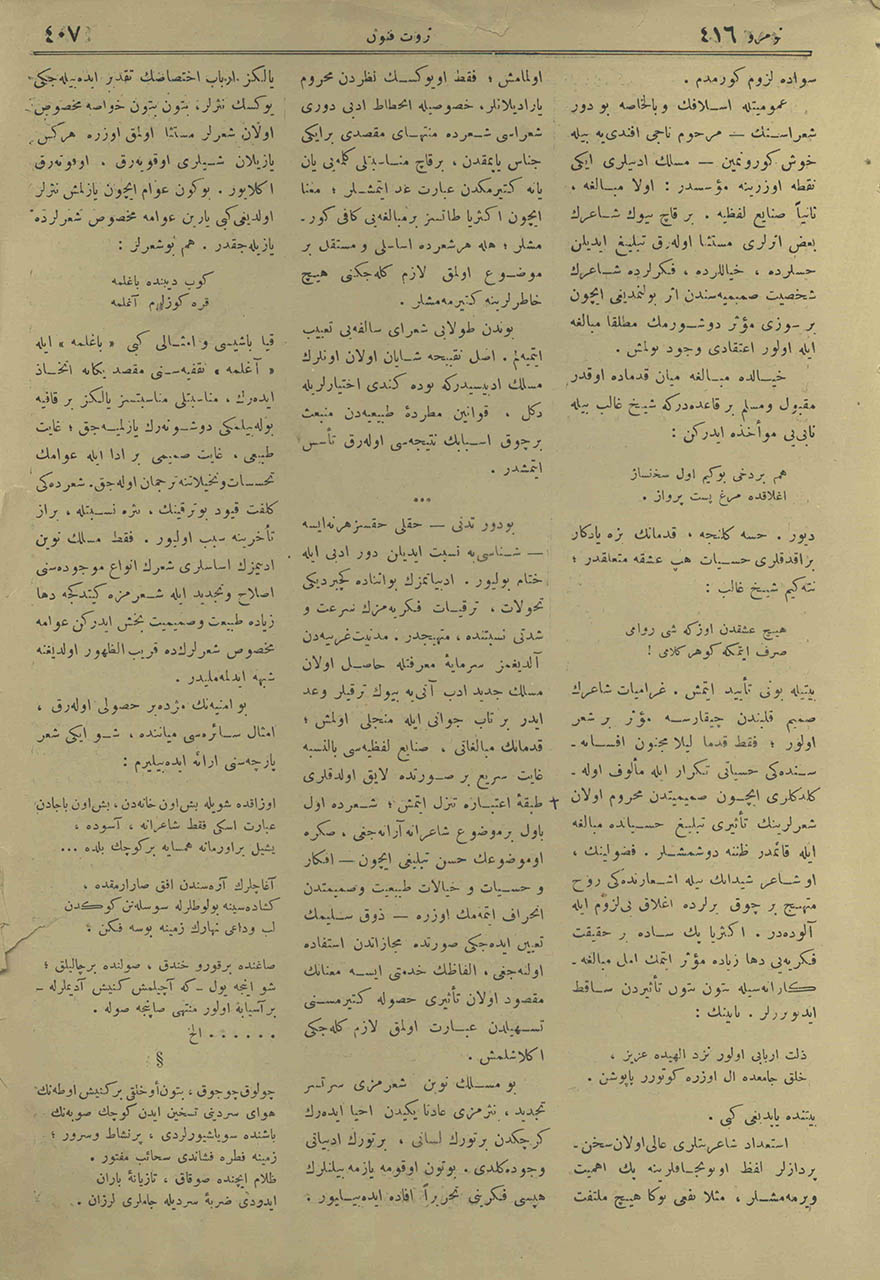 نومرو ٤١٦
ثروت فنون
٤٠٧
سواده لزوم كورمدم .
عموميتله اسلافك وبالخاصه بو دور
شعراسنك — مرحوم ناجى افندى‌يه بيله
خوش كورونمين — مسلك ادبيلرى ايكى
نقطه اوزرينه مؤسسدر : اولا مبالغه ،
ثانياً صنايع لفظيه . بر قاچ بيوك شاعرك
بعض اثرلرى مستثنا اوله‌رق تبليغ ايديلن
حسلرده ، خياللرده ، فكرلرده شاعرك
شخصيت صميميه‌سندن اثر بولنمديغى ايچون
بر سوزى مؤثر دوشورمك مطلقا مبالغه
ايله اولور اعتقادى وجود بولمش .
خيالده مبالغه ميان قدماده اوقدر
مقبول ومسلم بر قاعده‌دركه شيخ غالب بيله
نابى‌يى مؤاخذه ايدركن :
هم بردخى بوكيم اول سخنساز
اغلاقده مرغ پست پرواز .
ديور . حسه كلنجه ، قدمانك بزه يادكار
براقدقلرى حسيات هپ عشقه متعلقدر ؛
نته‌كيم شيخ غالب :
هيچ عشقدن اوزكه شى روامى
صرف ايتمكه كوهر كلامى !
بيتيله بونى تأييد ايتمش . غراميات شاعرك
صميم قلبندن چيقارسه مؤثر بر شعر
اولور ؛ فقط قدما ليلا مجنون افسانه‌ـ
سنده‌كى حسياتى تكرار ايله مألوف اوله‌ـ
كلدكلرى ايچون صميميتدن محروم اولان
شعرلرينك تأثيرى تبليغ حسياتده مبالغه
ايله قائمدر ظننه دوشمشلر . فضولينك ،
او شاعر شيدانك بيله اشعارنده‌كى روح
متهيج بر چوق يرلرده اغلاق بى‌لزوم ايله
آلوده‌در . اكثريا پك ساده بر حقيقت
فكريه‌يى دها زياده مؤثر ايتمك املِ مبالغه‌ـ
كارانه‌سيله بتون بتون تأثيردن ساقط
ايديويررلر . نابينك :
ذلت اربابى اولور نزد الهيده عزيز ،
خلق جامعده ال اوزره كوتورر پاپوشن .
بيتنده ياپديغى كبى .
استعداد شاعريتلرى عالى اولان سخن‌ـ
پردازلر لفظ اويونجاقلرينه پك اهميت
ويرمه‌مشلر ، مثلا نفعى بوكا هيچ ملتفت
اولمامش ؛ فقط او يوكسك نظردن محروم
ياراديلانلر ، خصوصيله انحطاط ادبى دورى
شعراسى شعرده منتهاى مقصدى برايكى
جناس ياپمقدن ، برقاچ مناسبتلى كله‌يى يان
يانه كتيرمكدن عبارت عد ايتمشلر ؛ معنا
ايچون اكثريا طاتسز برمبالغه‌يى كافى كور‌ـ
مشلر ؛ هله هر شعرده اساسلى و مستقل بر
موضوع اولمق لازم كله‌جكنى هيچ
خاطرلرينه كتيرمه‌مشلر .
بوندن طولايى شعراى سالفه‌يى تعييب
ايتميه‌لم . اصل تقبيحه شايان اولان اونلرك
مسلك ادبيسيدركه بوده كندى اختيارلريله
دكل ، قوانين مطردهٔ طبيعيه‌دن منبعث
برچوق اسبابك نتيجه‌سى اوله‌رق تأسس
ايتمشدر .
***
بودور تدنى — حقلى حقسز هرنه‌ايسه
— شناسى‌يه نسبت ايديلن دور ادبى ايله
ختام بوليور . ادبياتمزك بو اثناده كچيرديكى
تحولات ، ترقيات فكريه‌مزك سرعت و
شدتى نسبتنده ، متهيجدر . مدنيت غربيه‌دن
آلديغمز سرمايهٔ معرفتله حاصل اولان
مسلك جديد ادب آتى‌يه بيوك ترقيلر وعد
ايدر بر تاب جوانى ايله منجلى اولمش ؛
قدمانك مبالغاتى ، صنايع لفظيه‌سى بالنسبه
غايت سريع بر صورتده لايق اولدقلرى
طبقهٔ اعتباره تنزل ايتمش ؛ شعرده اول
باول بر موضوع شاعرانه آرانه‌جغى ، صكره
او موضوعك حسن تبليغى ايچون — افكار
و حسيات و خيالات طبيعيت وصميميتدن
انحراف ايتمه‌مك اوزره — ذوق سليمك
تعيين ايده‌جكى صورتده مجازاتدن استفاده
اولنه‌جغى ، الفاظك خدمتى ايسه معنانك
مقصود اولان تأثيرى حصوله كتيرمسنى
تسهيلدن عبارت اولمق لازم كله‌جكى
اكلاشلمش .
بو مسلك نوين شعرمزى سرتسر
تجديد ، نثرمزى عادتا يكيدن احيا ايده‌رك
كرچكدن برتورك لسانى ، برتورك ادبياتى
وجوده كلدى . بوتون اوقومه يازمه بيلنلرك
هپسى فكرينى تحريراً افاده ايده‌بيليور .
يالكز ارباب اختصاصك تقدير ايده‌بيله‌جكى
يوكسك نثرلر ، بتون بتون خواصه مخصوص
اولان شعرلر مستثنا اولمق اوزره هركس
يازيلان شيلرى اوقويه‌رق ، اوقونه‌رق
اكلايور . بوكون عوام ايچون يازلمش نثرلر
اولديغى كبى يارين عوامه مخصوص شعرلرده
يازيله‌جقدر . هم بو شعرلر :
كوپ ديبنده باغلمه
قره كوزلم آغلمه
قيا باشيسى و امثالى كبى « باغلمه » ايله
« آغلمه » تقفيه‌سنى مقصد يكانه اتخاذ
ايده‌رك ، مناسبتلى مناسبتسز يالكز بر قافيه
بوله‌بيلمكى دوشونه‌رك يازلميه‌جق ؛ غايت
طبيعى ، غايت صميمى بر ادا ايله عوامك
تحسسات وتخيلاتنه ترجمان اوله‌جق. شعرده‌كى
كلفت قيود بوترقينك ، نثره نسبتله ، براز
تأخرينه سبب اوليور . فقط مسلك نوين
ادبيمزك اساسلرى شعرك انواع موجوده‌سنى
اصلاح وتجديد ايله شعرمزه كيتدكجه دها
زياده طبيعت وصميميت بخش ايدركن عوامه
مخصوص شعرلرك‌ده قريب الظهور اولديغنه
شبهه ايدلمه‌مليدر .
بو امنيه‌نك مژده‌بر حصولى اوله‌رق ،
امثال سائره‌سى مياننده ، شو ايكى شعر
پارچه‌سنى ارائه ايده‌بيليرم :
اوزاقده شويله بش‌اون خانه‌دن ، بش‌اون باجادن
عبارت اسكى فقط شاعرانه ، آسوده ،
يشيل براورمانه همسايه بركوچك بلده ...
آغاچلرك آره‌سندن افق صارارمقده ،
كشاده‌سينه بولوطلرله سوسله‌نن كوكدن
لب وداعى نهارك زمينه بوسه فكن .
صاغنده برقورو خندق ، صولنده برچاليلق ؛
شو اينجه يول ــ كه آچيلمش كنيش آديملرله ــ
بر آسيابه اولور منتهى صاپنجه صوله .
. . . . . . الخ
§
چولوق چوجوق ، بتون أوخلقى بركنيش اوطه‌نك
هواى سردينى تسخين ايدن كوچك صوبه‌نك
باشنده سويلشيورلردى ، پرنشاط وسرور ؛
زمينه قطره فشاندى سحائب مفتور .
ظلام ايچنده صوقاق ، تازيانهٔ باران
ايدردى ضربهٔ سرديله جاملرى لرزان .